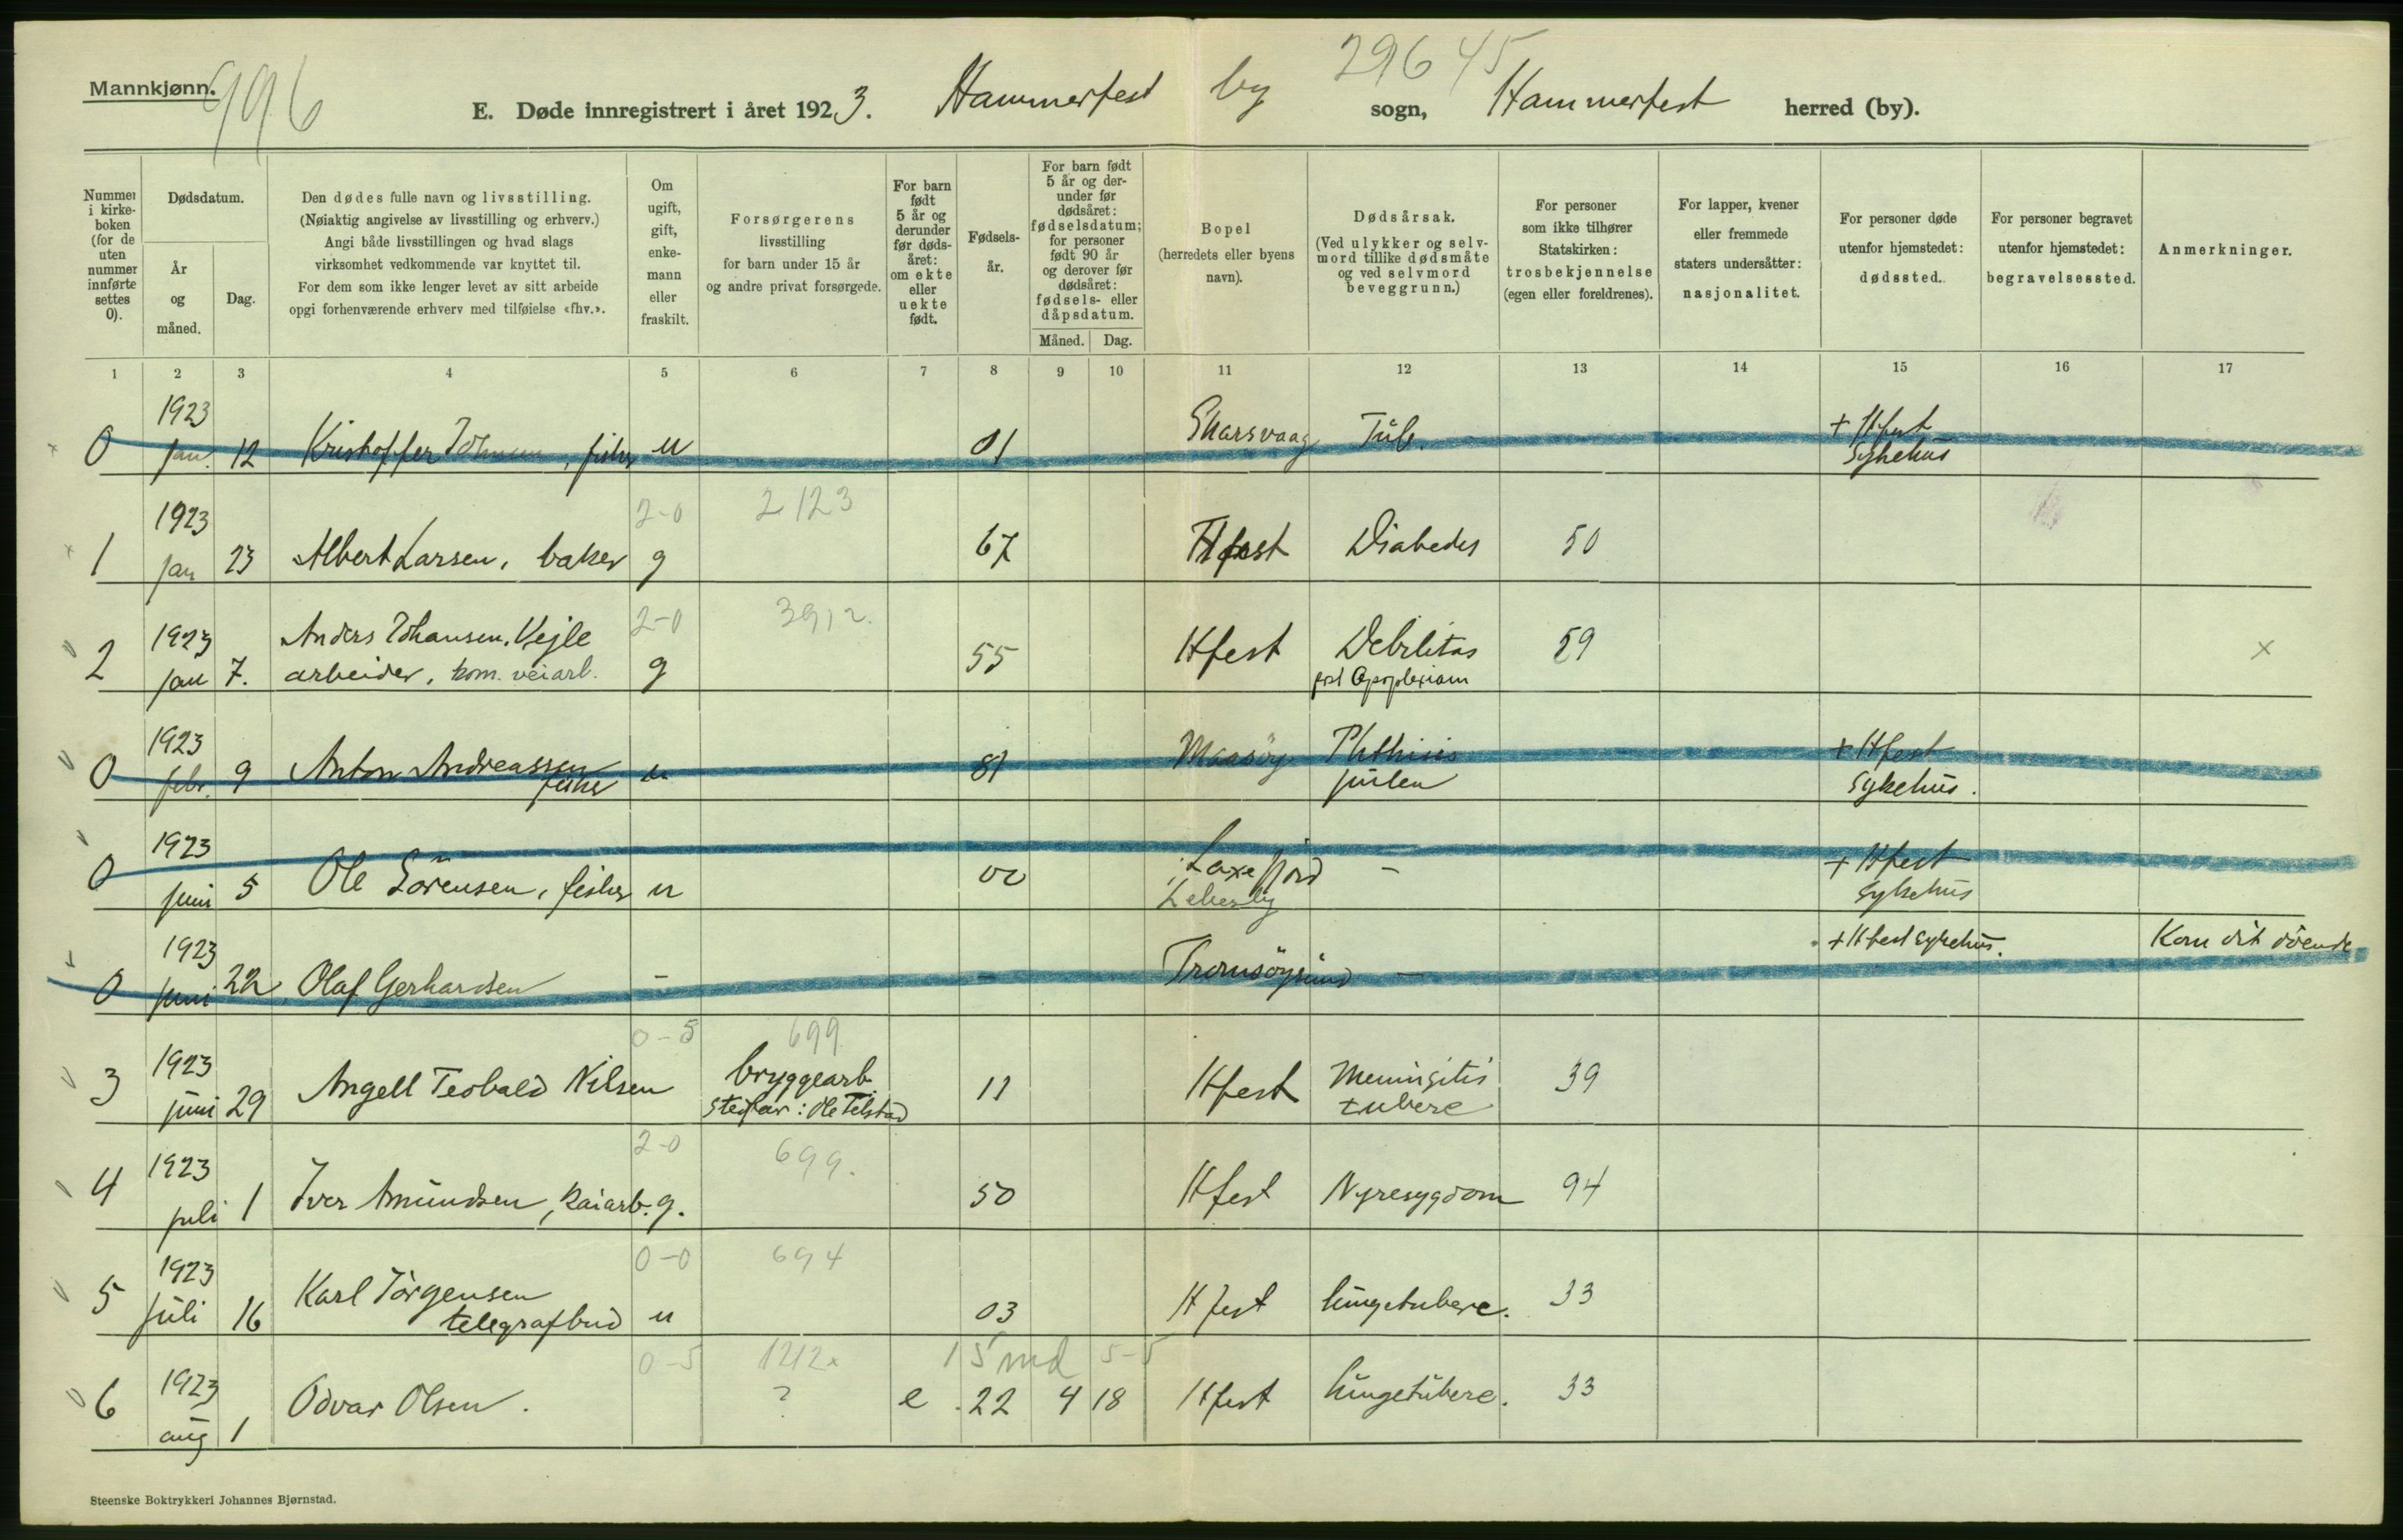 Mannkjønn.
996
29645
E. Døde innregistrert i året 1923. Hammerfest by sogn, Hammerfest herred (by).
Nummer i kirke-boken (for de uten nummer innførte settes 0).
Dødsdatum.
År og måned.
Dag.
Den dødes fulle navn og livsstilling.
(Nøiaktig angivelse av livsstilling og erhverv.)
Angi både livsstillingen og hvad slags
virksomhet vedkommende var knyttet til.
For dem som ikke lenger levet av sitt arbeide
opgi forhenværende erhverv med tilføielse «fhv.».
Om ugift, gift, enke-mann eller fraskilt.
Forsørgerens
livsstilling
for barn under 15 år
og andre privat forsørgede.
For barn født 5 år og derunder før døds-året: om ekte eller uekte født.
Fødsels-år.
For barn født 5 år og der-under før dødsåret: fødselsdatum; for personer født 90 år og derover før dødsåret: fødsels- eller dåpsdatum.
Måned. Dag.
Bopel
(herredets eller byens
navn).
Dødsårsak.
(Ved ulykker og selv-
mord tillike dødsmåte
og ved selvmord
beveggrunn.)
For personer
som ikke tilhører
Statskirken:
trosbekjennelse
(egen eller foreldrenes).
For lapper, kvener
eller fremmede
staters undersåtter:
nasjonalitet.
For personer døde
utenfor hjemstedet:
dødssted.
For personer begravet
utenfor hjemstedet:
begravelsessted.
Anmerkninger.
1 2 3 4 5 6 7 8 9 10 11 12 13 14 15 16 17
0 1923 jan. 12 Kristoffer Johnsen, fisker u 01 Skarsvaag Tub. + Hfest Sykehus
2-0 2123
1 1923 jan 23 Albert Larsen, baker g 67 Hfest Diabedes 50
2-0 3912.
2 1923 jan 7. Anders Johansen Vejle
arbeider, kom. veiarb. g 55 Hfest Debilitas
post Apoplexiam 59 x
0 1923 febr. 9 Anton Andreassen
fisker u 81 Maasöy Phthisis
pulm + Hfest
Sykehus.
0 1923 juni 5 Ole Sörensen, fisker u 00 Laxefjord
Lebesby - + Hfest
Sykehus
0 1923 juni 22 Olaf Gerhardsen - - Tromsöysund - + Hfest Sykehus. Kom dit döende
0-5 699
3 1923 juni 29 Angell Teobald Nilsen bryggearb
stedfar: Ole Telstad 11 Hfest Meningitis
tuberc 39
2-0 699.
4 1923 juli 1 Iver Amundsen, kaiarb. g. 50 Hfest Nyresygdom 94
0-0 694
5 1923 Juli 16 Karl Jörgensen
telegrafbud u 03 Hfest lungetuberc. 33
0-5 1212x 15 md 5-5
6 1923 aug 1 Odvar Olsen. ? e 22 4 18 Hfest lungetuberc. 33
Steenske Boktrykkeri Johannes Bjørnstad.